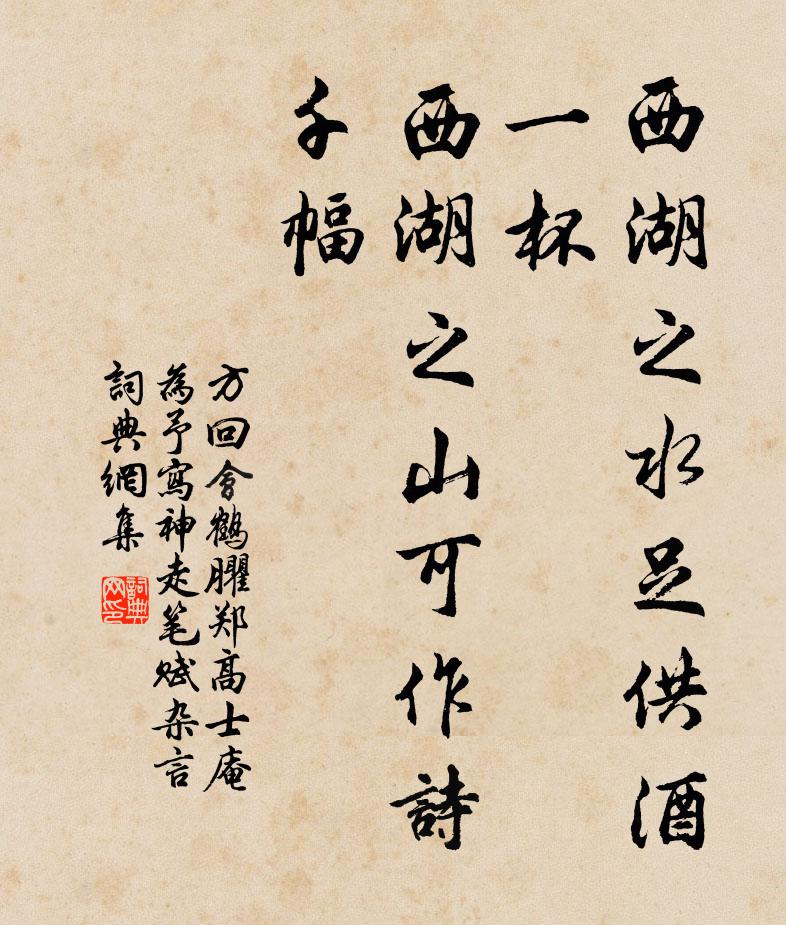 西湖之水足供酒
一杯
西湖之山可作詩
千幅
方回會鶴臞郑高士庵
為予寫神走笔赋杂言
詞典網集
詞典
网印